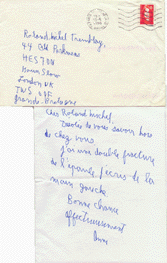 Roland Michel Tremblay,
44 Old Parkway
HESTON
Hounslow
London UK
TW5
Grande-Bretagne
Cher Roland Michel,
de vous savoir hors
de chez vous.
J'ai une double fracture
de l'épaule, j'écris de la
main gauche
Bonne chance
affectueusement